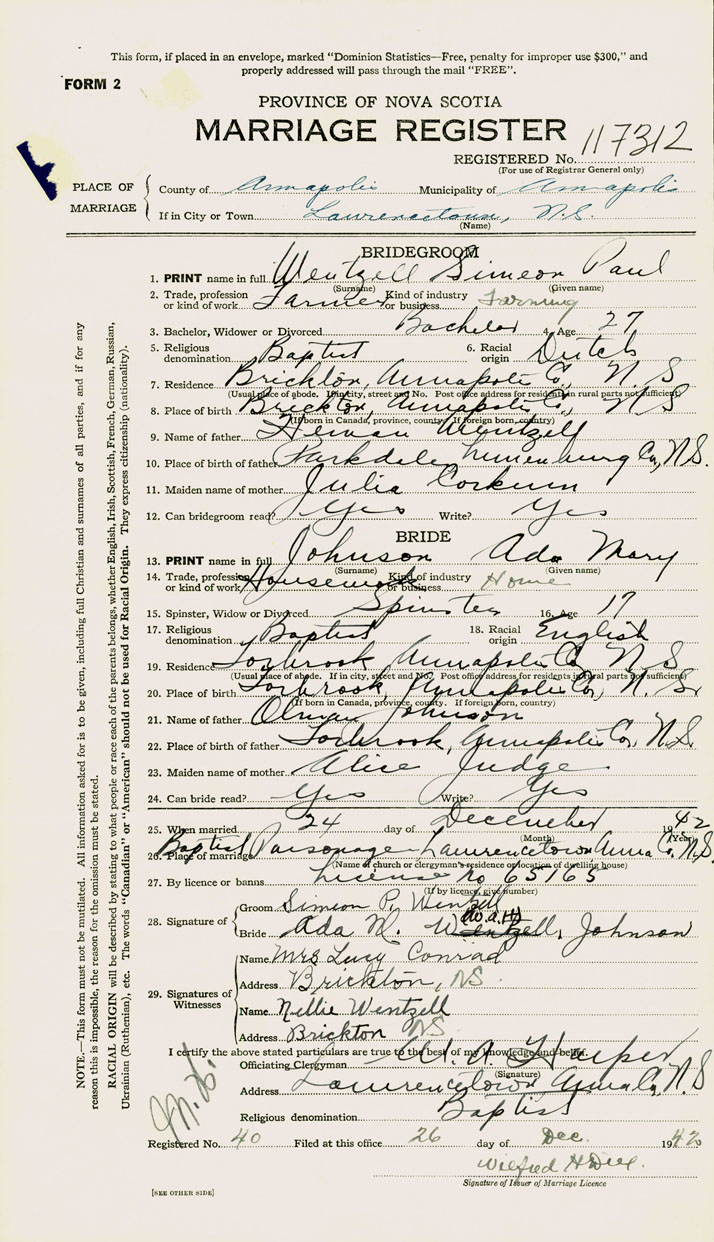 This form, if placed in an envelope, marked "Dominion Statistics—Free, penalty for improper use $300," and
properly addressed will pass through the mail "FREE".
FORM 2
PROVINCE OF NOVA SCOTIA
MARRIAGE REGISTER
REGISTERED No. 117312
(For use of Registrar General only)
PLACE OF MARRIAGE
County of Annapolis Municipality of Annapolis
If in City or Town Lawrencetown, N.S.
(Name)
BRIDEGROOM
1. PRINT name in full Wentzell Simeon Paul
(Surname) (Given name)
2. Trade, profession or kind of work Farmer Kind of industry or business Farming
3. Bachelor, Widower or Divorced Bachelor 4. Age 27
5. Religious denomination Baptist 6. Racial origin Dutch
7. Residence Brickton, Annapolis Co, N.S
(Usual place of abode. If in city, street and No. Post office address for residents in rural parts not sufficient)
8. Place of birth Brickton, Annapolis Co, N S
(If born in Canada, province, county. If foreign born, country)
9. Name of father Heman Wentzell
10. Place of birth of father Parkdale Lunenburg Co, N.S.
11. Maiden name of mother Julia Corkum
12. Can bridegroom read? Yes Write? Yes
BRIDE
13. PRINT name in full Johnson Ada Mary
(Surname) (Given name)
14. Trade, profession or kind of work Housework Kind of industry or business Home
15. Spinster, Widow or Divorced Spinster 16. Age 17
17. Religious denomination Baptist 18. Racial origin English
19. Residence Torbrook Annapolis Co N.S
(Usual place of abode. If in city, street and No. Post office address for residents in rural parts not sufficient)
20. Place of birth Torbrook, Annapolis Co, N.S.
(If born in Canada, province, county. If foreign born, country)
21. Name of father Johnson
22. Place of birth of father Torbrook, Annapolis Co, N.S.
23. Maiden name of mother Alice Judge
24. Can bride read? Yes Write? Yes
25. When married 24 day of December 1942
(Month) (Year)
26. Place of marriage Baptist Parsonage Lawrencetown Anna Co. N.S.
(Name of church or clergyman's residence or location of dwelling house)
27. By licence or banns License No 65165
(If by licence, give number)
28. Signature of
Groom Simeon P. Wentzell
(W.A.H)
Bride Ada M. Wentzell, Johnson
29. Signatures of Witnesses
Name Mrs Lucy Conrad
Address Brickton, NS
Name Nellie Wentzell
Address Brickton NS
I certify the above stated particulars are true to the best of my knowledge and belief.
Officiating Clergyman A. Harper
(Signature)
Address Lawrencetown Anna Co, N.S
Religious denomination Baptist
Registered No. 40 Filed at this office 26 day of Dec. 1942
Signature of Issuer of Marriage Licence
[SEE OTHER SIDE]
NOTE.—This form must not be mutilated. All information asked for is to be given, including full Christian and surnames of all parties, and if for any
reason this is impossible, the reason for the omission must be stated.
RACIAL ORIGIN will be described by stating to what people or race each of the parents belongs, whether English, Irish, Scottish, French, German, Russian,
Ukrainian (Ruthenian), etc. The words "Canadian" or "American" should not be used for Racial Origin. They express citizenship (nationality).